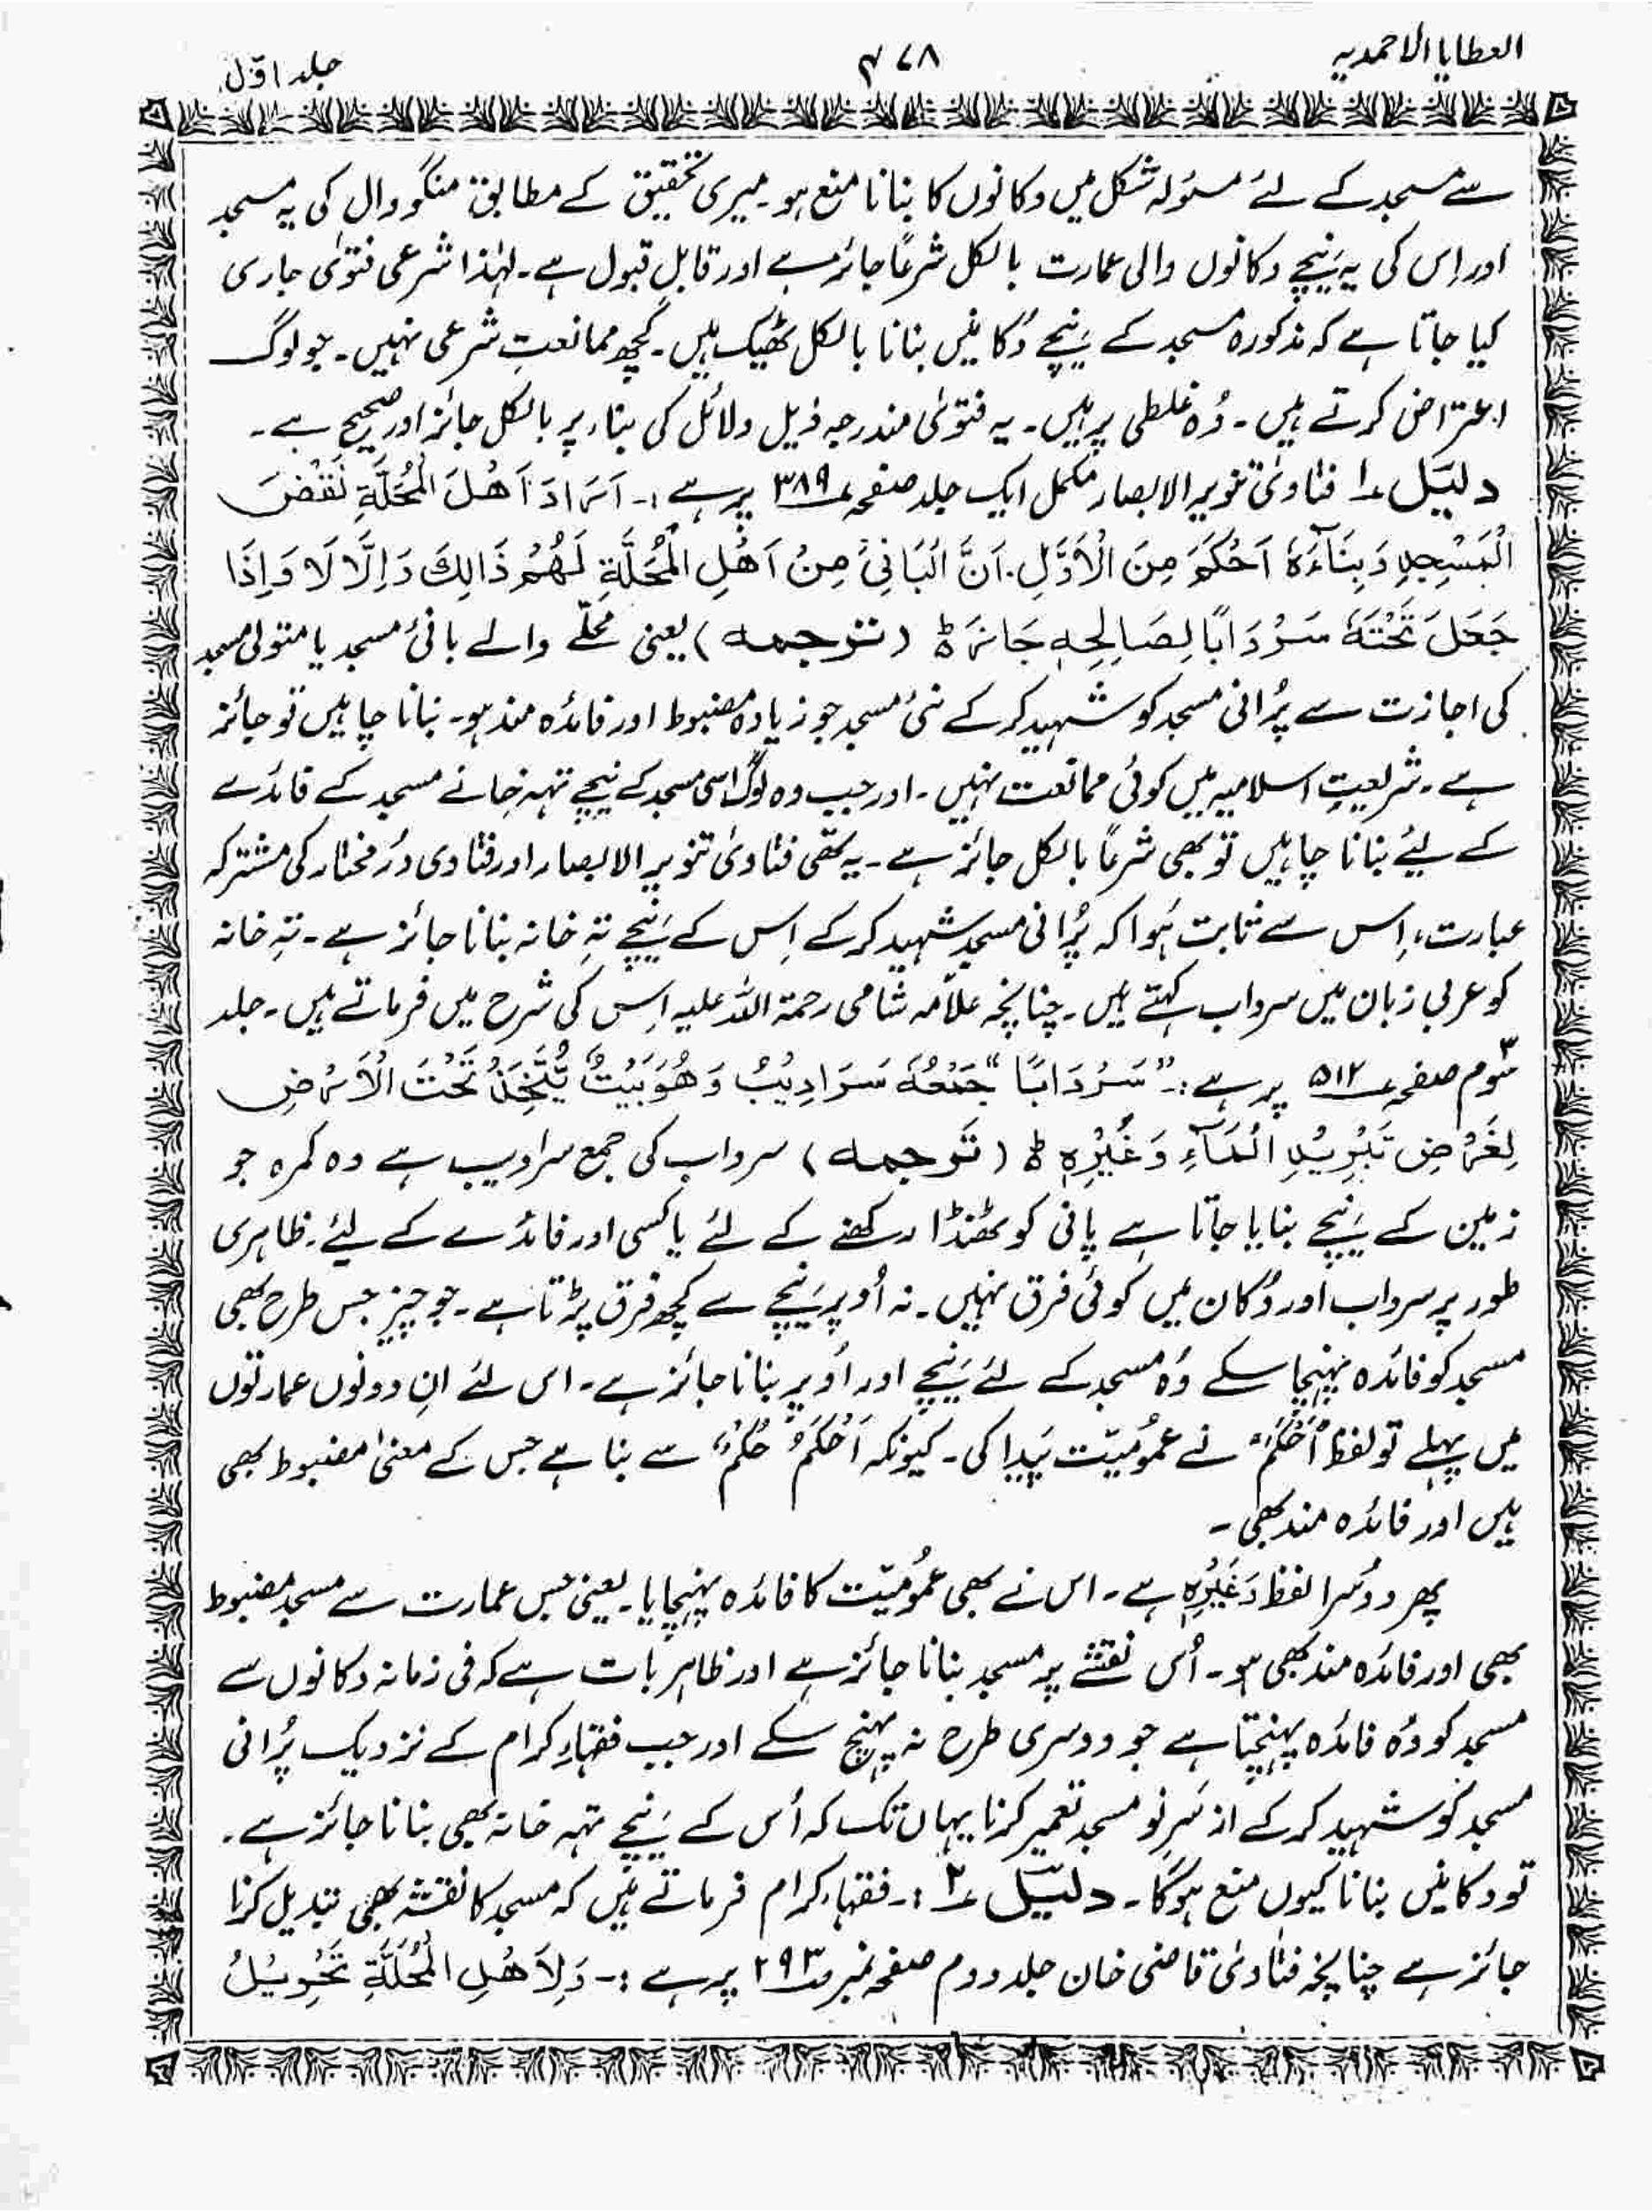 العطایا الاحمدیہ
۴۷۸
جلد اوّل
سے مسجد کے لئے مسئولہ شکل میں دکانوں کا بنانا منع ہو۔ میری تحقیق کے مطابق منگووال کی یہ مسجد
اور اِس کی یہ نیچے دکانوں والی عمارت بالکل شرعًا جائز ہے اور قابلِ قبول ہے۔ لہٰذا شرعی فتوٰی جاری
کیا جاتا ہے کہ مذکورہ مسجد کے نیچے دُکانیں بنانا بالکل ٹھیک ہیں۔ کُچھ ممانعتِ شرعی نہیں۔ جو لوگ
اعتراض کرتے ہیں۔ وُہ غلطی پر ہیں۔ یہ فتوٰی مندرجہ ذیل دلائل کی بناء پر بالکل جائز اور صحیح ہے۔
دلیل ۱ فتاوٰی تنویر الابصار مکمل ایک جلد صفحہ ۳۸۹ پر ہے :۔ اَرَادَ اَھْلَ الْمُحَلَّةِ نَقْضَ
الْمَسْجِدِ وَبِنَآءَہٗ اَحْکَمَ مِنَ الْاَوَّلِ۔ اَنَّ الْبَانِیْ مِنْ اَھْلِ الْمُحَلَّةِ لَھُمْ ذَالِكَ وَاِلَّا لَا وَاِذَا
جَعَلَ تَحْتَہٗ سَرْدَابًا لِصَالِحِہٖ جَازَ ط (ترجمہ) یعنی محلّے والے بانیٔ مسجد یا متولی مسجد
کی اجازت سے پُرانی مسجد کو شہید کر کے نئی مسجد جو زیادہ مضبوط اور فائدہ مند ہو۔ بنانا چاہیں تو جائز
ہے۔ شریعتِ اسلامیہ میں کوئی ممانعت نہیں۔ اور جب وہ لوگ اسی مسجد کے نیچے تہہ خانے مسجد کے فائدے
کے لیئے بنانا چاہیں تو بھی شرعًا بالکل جائز ہے۔ یہ تھی فتاوٰی تنویر الابصار اور فتاوی درِ مختار کی مشترکہ
عبارت، اِس سے ثابت ہُوا کہ پُرانی مسجد شہید کر کے اِس کے نیچے تہِ خانہ بنانا جائز ہے۔ تہِ خانہ
کو عربی زبان میں سرداب کہتے ہیں۔ چنانچہ علاّمہ شامی رحمۃ اللہ علیہ اِس کی شرح میں فرماتے ہیں۔ جلد
سوم صفحہ ۵۱۲ پر ہے :۔ "سَرْدَابًا" جَمْعُہٗ سَرَادِیْبُ وَھُوَ بَیْتٌ یُّتَّخَذُ تَحْتَ الْاَرْضِ
لِغَرْضِ تَبْرِیْدِ الْمَآءِ وَغَیْرِہٖ ط (ترجمہ) سرداب کی جمع سرادیب ہے وہ کمرہ جو
زمین کے نیچے بنایا جاتا ہے پانی کو ٹھنڈا رکھنے کے لئے یا کسی اور فائدے کے لیئے۔ ظاہری
طور پر سرداب اور دُکان میں کوئی فرق نہیں۔ نہ اُوپر نیچے سے کچھ فرق پڑتا ہے۔ جو چیز جس طرح بھی
مسجد کو فائدہ پہنچا سکے وُہ مسجد کے لئے نیچے اور اُوپر بنانا جائز ہے۔ اس لئے اِن دونوں عمارتوں
میں پہلے تو لفظ "اَحْکَمَ" نے عمومیّت پیدا کی۔ کیونکہ اَحْکَمُ حُکْمٌ سے بنا ہے جس کے معنیٰ مضبوط بھی
ہیں اور فائدہ مند بھی۔
پھر دوسرا لفظ وَغَیْرِہٖ ہے۔ اس نے بھی عمُومیّت کا فائدہ پہنچایا۔ یعنی جس عمارت سے مسجد مضبوط
بھی اور فائدہ مند بھی ہو۔ اُس نقشے پر مسجد بنانا جائز ہے اور ظاہر بات ہے کہ فی زمانہ دکانوں سے
مسجد کو وُہ فائدہ پہنچتا ہے جو دوسری طرح نہ پہنچ سکے اور جب فقہاءِ کرام کے نزدیک پُرانی
مسجد کو شہید کر کے از سرِ نو مسجد تعمیر کرنا یہاں تک کہ اُس کے نیچے تہہ خانہ بھی بنانا جائز ہے۔
تو دکانیں بنانا کیوں منع ہوگا۔ دلیل ۲ :۔ فقہاء کرام فرماتے ہیں کہ مسجد کا نقشہ بھی تبدیل کرنا
جائز ہے چنانچہ فتاوٰی قاضی خان جلد دوم صفحہ نمبر ۲۹۳ پر ہے :۔ وَلِاَھْلِ الْمُحَلَّةِ تَحْوِیْلُ